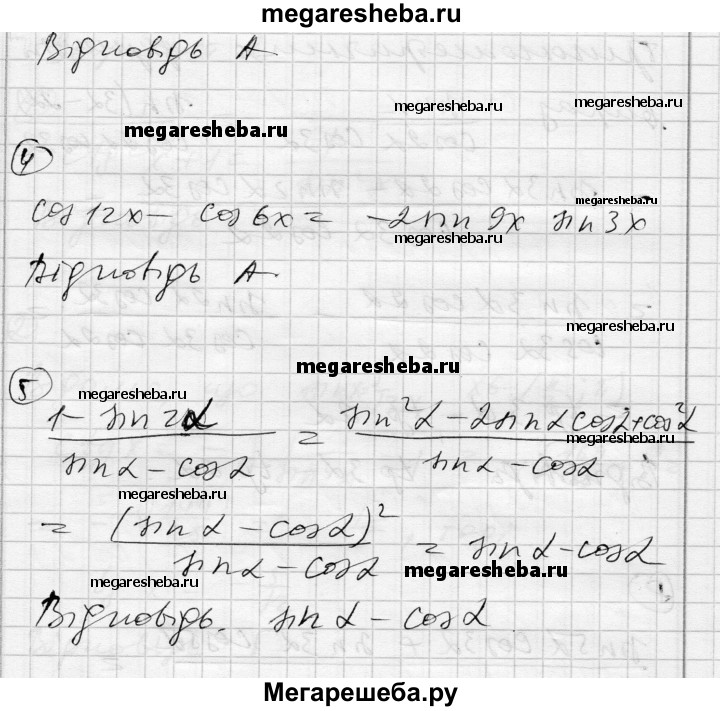 megaresheba.ru
Відповідь А.
megaresheba.ru
megaresheba.ru
4
megaresheba.ru
cos 12x − cos 6x = −2 sin 9x sin 3x
megaresheba.ru
Відповідь А.
megaresheba.ru
megaresheba.ru
5
megaresheba.ru
1 − sin 2α / sin α − cos α = sin² α − 2 sin α cos α + cos² α / sin α − cos α
megaresheba.ru
= (sin α − cos α)² / sin α − cos α = sin α − cos α
megaresheba.ru
megaresheba.ru
Відповідь. sin α − cos α
megaresheba.ru
Мегарешеба.ру